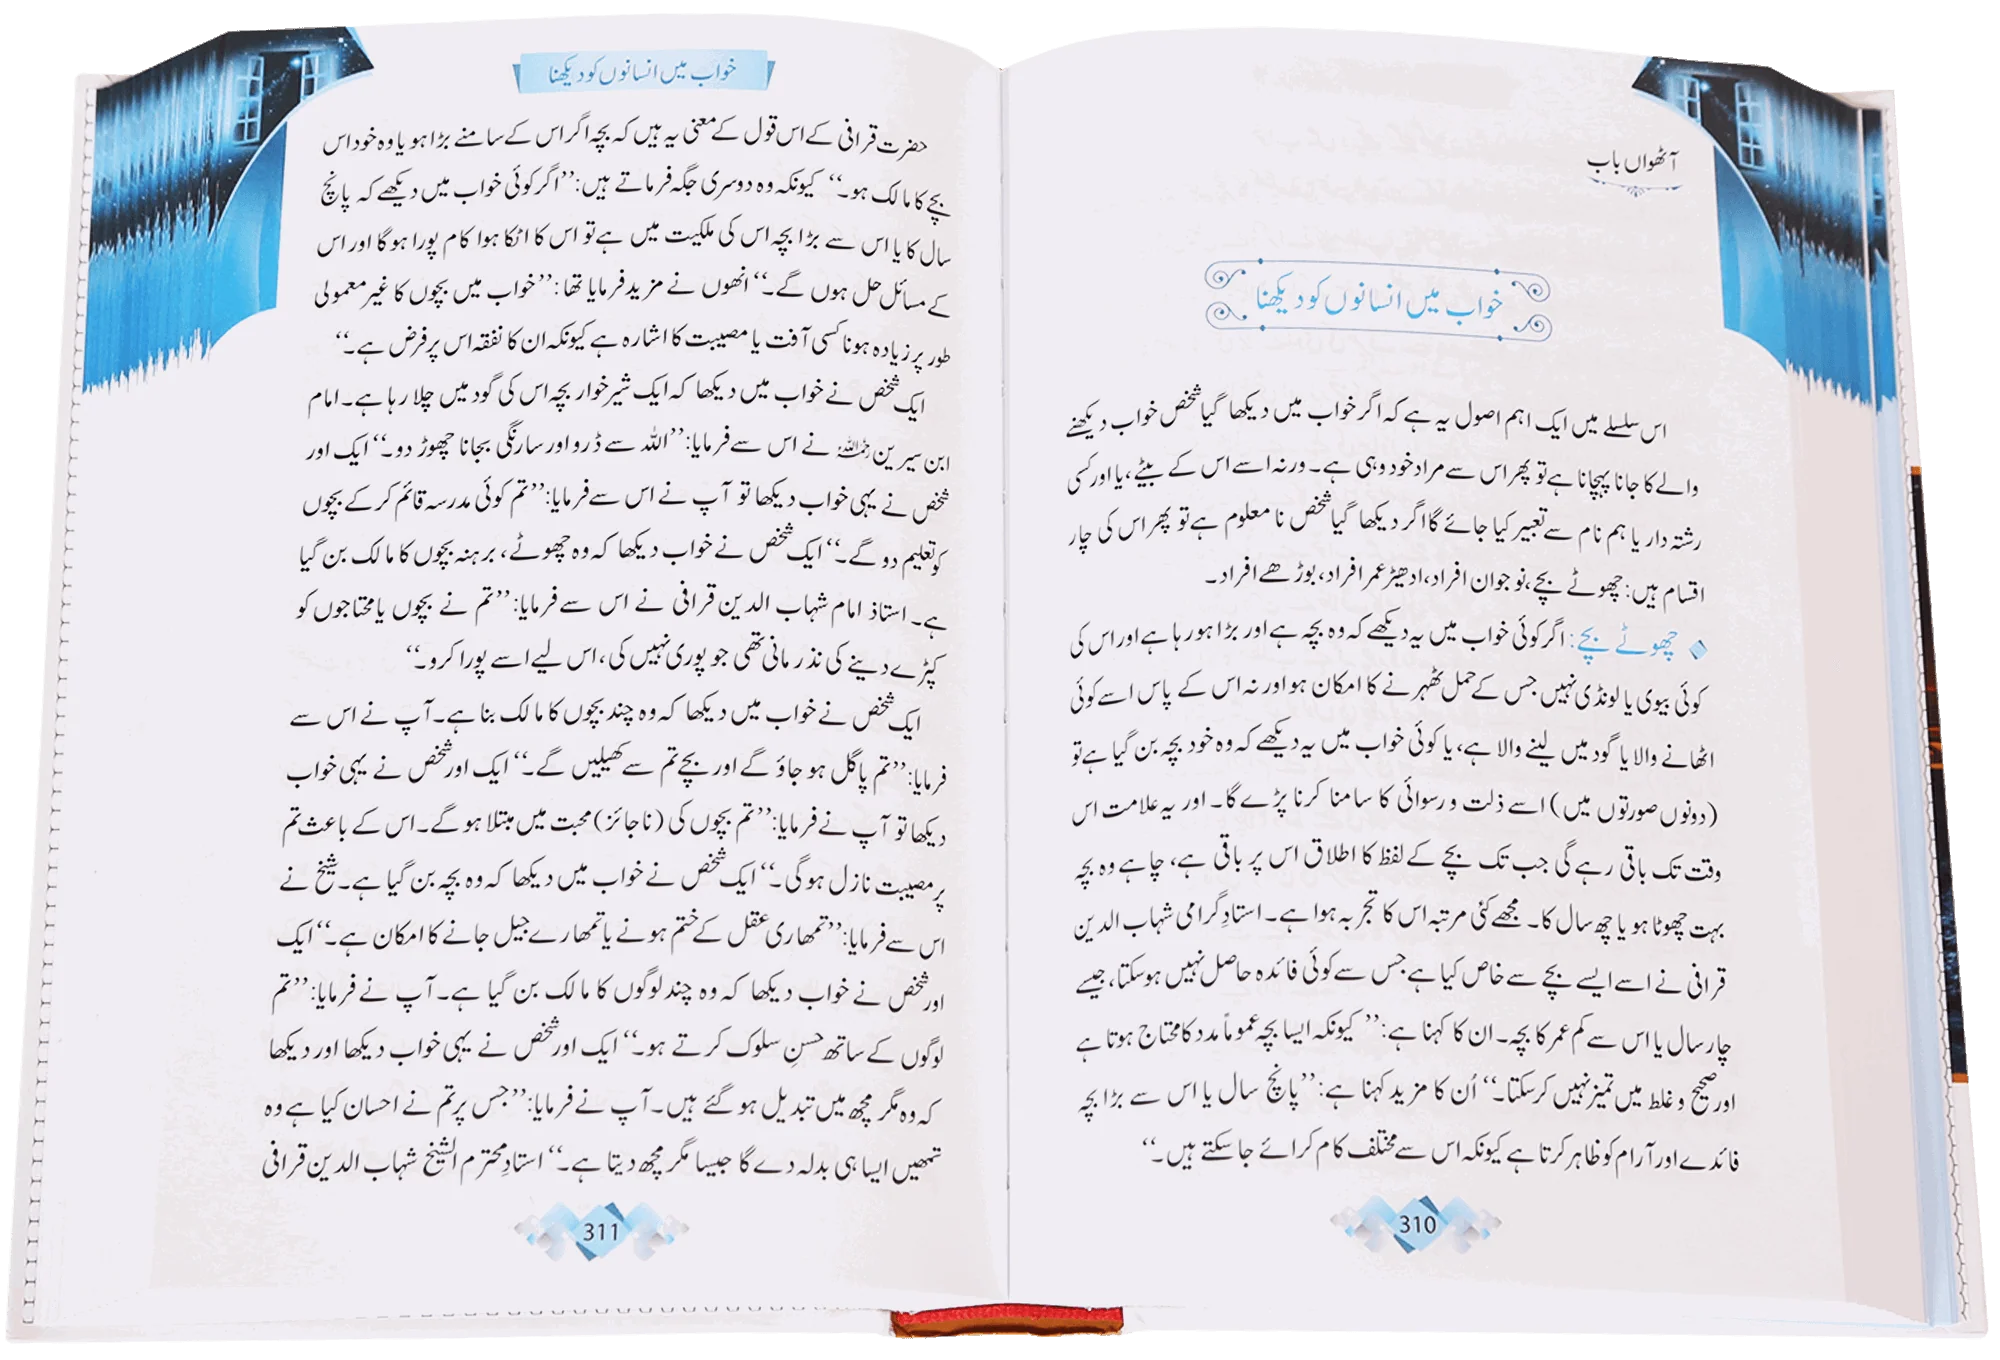 آٹھواں باب
خواب میں انسانوں کو دیکھنا
اس سلسلے میں ایک اہم اصول یہ ہے کہ اگر خواب میں دیکھا گیا شخص خواب دیکھنے
والے کا جانا پہچانا ہے تو پھر اس سے مراد خود وہی ہے۔ ورنہ اسے اس کے بیٹے، یا اور کسی
رشتہ دار یا ہم نام سے تعبیر کیا جائے گا اگر دیکھا گیا شخص نا معلوم ہے تو پھر اس کی چار
اقسام ہیں: چھوٹے بچے، نوجوان افراد، ادھیڑ عمر افراد، بوڑھے افراد۔
چھوٹے بچے: اگر کوئی خواب میں یہ دیکھے کہ وہ بچہ ہے اور بڑا ہو رہا ہے اور اس کی
کوئی بیوی یا لونڈی نہیں جس کے حمل ٹھہرنے کا امکان ہو اور نہ اس کے پاس اسے کوئی
اٹھانے والا یا گود میں لینے والا ہے، یا کوئی خواب میں یہ دیکھے کہ وہ خود بچہ بن گیا ہے تو
(دونوں صورتوں میں) اسے ذلت و رسوائی کا سامنا کرنا پڑے گا۔ اور یہ علامت اس
وقت تک باقی رہے گی جب تک بچے کے لفظ کا اطلاق اس پر باقی ہے، چاہے وہ بچہ
بہت چھوٹا ہو یا چھ سال کا۔ مجھے کئی مرتبہ اس کا تجربہ ہوا ہے۔ استادِ گرامی شہاب الدین
قرافی نے اسے ایسے بچے سے خاص کیا ہے جس سے کوئی فائدہ حاصل نہیں ہوسکتا، جیسے
چار سال یا اس سے کم عمر کا بچہ۔ ان کا کہنا ہے: ’’کیونکہ ایسا بچہ عموماً مدد کا محتاج ہوتا ہے
اور صحیح و غلط میں تمیز نہیں کرسکتا۔‘‘ اُن کا مزید کہنا ہے: ’’پانچ سال یا اس سے بڑا بچہ
فائدے اور آرام کو ظاہر کرتا ہے کیونکہ اس سے مختلف کام کرائے جاسکتے ہیں۔‘‘
310
خواب میں انسانوں کو دیکھنا
حضرت قرافی کے اس قول کے معنی یہ ہیں کہ بچہ اگر اس کے سامنے بڑا ہو یا وہ خود اس
بچے کا مالک ہو۔‘‘ کیونکہ وہ دوسری جگہ فرماتے ہیں: ’’اگر کوئی خواب میں دیکھے کہ پانچ
سال کا یا اس سے بڑا بچہ اس کی ملکیت میں ہے تو اس کا اٹکا ہوا کام پورا ہوگا اور اس
کے مسائل حل ہوں گے۔‘‘ انھوں نے مزید فرمایا تھا: ’’خواب میں بچوں کا غیر معمولی
طور پر زیادہ ہونا کسی آفت یا مصیبت کا اشارہ ہے کیونکہ ان کا نفقہ اس پر فرض ہے۔‘‘
ایک شخص نے خواب میں دیکھا کہ ایک شیر خوار بچہ اس کی گود میں چلا رہا ہے۔ امام
ابن سیرین رحمہ اللہ نے اس سے فرمایا: ’’اللہ سے ڈرو اور سارنگی بجانا چھوڑ دو۔‘‘ ایک اور
شخص نے یہی خواب دیکھا تو آپ نے اس سے فرمایا: ’’تم کوئی مدرسہ قائم کر کے بچوں
کو تعلیم دو گے۔‘‘ ایک شخص نے خواب دیکھا کہ وہ چھوٹے، برہنہ بچوں کا مالک بن گیا
ہے۔ استاذ امام شہاب الدین قرافی نے اس سے فرمایا: ’’تم نے بچوں یا محتاجوں کو
کپڑے دینے کی نذر مانی تھی جو پوری نہیں کی، اس لیے اسے پورا کرو۔‘‘
ایک شخص نے خواب میں دیکھا کہ وہ چند بچوں کا مالک بنا ہے۔ آپ نے اس سے
فرمایا: ’’تم پاگل ہو جاؤ گے اور بچے تم سے کھیلیں گے۔‘‘ ایک اور شخص نے یہی خواب
دیکھا تو آپ نے فرمایا: ’’تم بچوں کی (ناجائز) محبت میں مبتلا ہو گے۔ اس کے باعث تم
پر مصیبت نازل ہوگی۔‘‘ ایک شخص نے خواب میں دیکھا کہ وہ بچہ بن گیا ہے۔ شیخ نے
اس سے فرمایا: ’’تمھاری عقل کے ختم ہونے یا تمھارے جیل جانے کا امکان ہے۔‘‘ ایک
اور شخص نے خواب دیکھا کہ وہ چند لوگوں کا مالک بن گیا ہے۔ آپ نے فرمایا: ’’تم
لوگوں کے ساتھ حسنِ سلوک کرتے ہو۔‘‘ ایک اور شخص نے یہی خواب دیکھا اور دیکھا
کہ وہ مگر مچھ میں تبدیل ہو گئے ہیں۔ آپ نے فرمایا: ’’جس پر تم نے احسان کیا ہے وہ
تمھیں ایسا ہی بدلہ دے گا جیسا مگر مچھ دیتا ہے۔‘‘ استادِ محترم الشیخ شہاب الدین قرافی
311